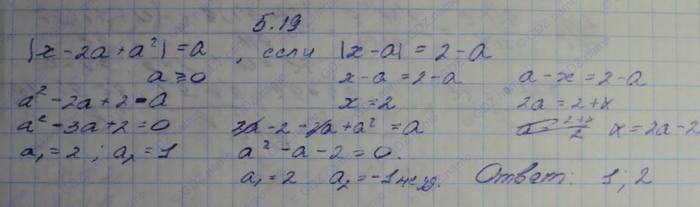 5.19
|x - 2a + a²| = a, если |x-a| = 2-a
a ≥ 0 x-a = 2-a a-x = 2-a
a² - 2a + 2 = a x = 2 2a = 2+x
a² - 3a + 2 = 0 2a - 2 - 2a + a² = a a = 2+x/2 x = 2a-2
a₁ = 2 ; a₂ = 1 a² - a - 2 = 0.
a₁ = 2 a₂ = -1 не уд. Ответ: 1; 2